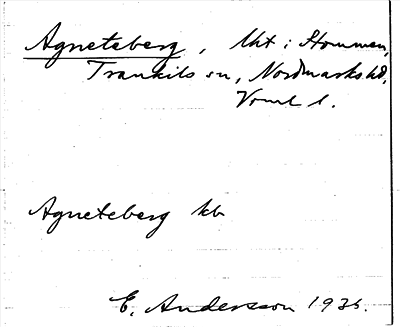 Agneteberg, lht i Stommen,
Trankils sn, Nordmarks hd,
Värml l.
Agneteberg kb
E. Andersson 1936.